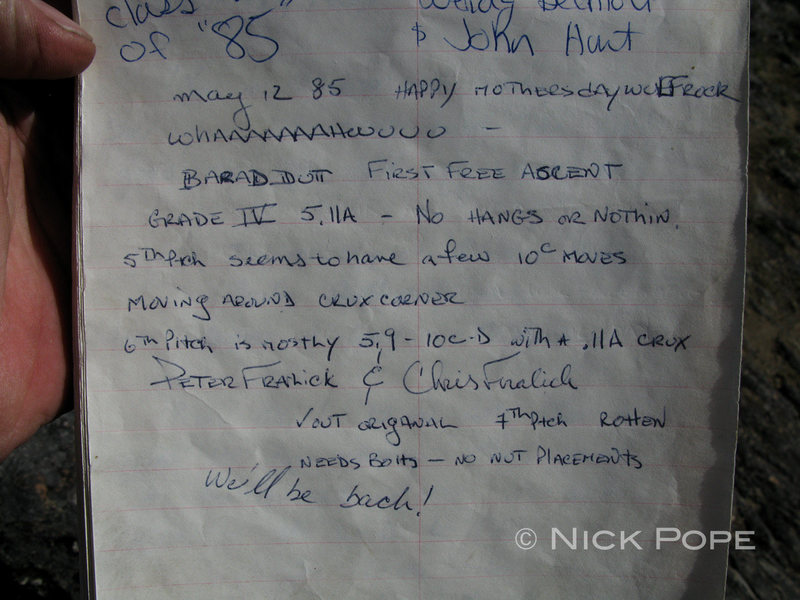 class
of "85
& John Hart
may 12 85 HAPPY MOTHERSDAY WOLFROCK
WHAAAAAAAHOUUUU -
BARAD DUR FIRST FREE ASCENT
GRADE IV 5.11A - NO HANGS OR NOTHIN.
5TH Pitch seems to have a few 10C MOVES
MOVING AROUND CRUX CORNER
6TH Pitch is mostly 5.9 - 10C-D with A .11A CRUX
PETER FRALICK & Chris Fralick
OUT ORIGANAL 7TH Pitch ROTTEN
NEEDS Bolts - NO NUT PLACEMENTS
We'll be back!
© NICK POPE